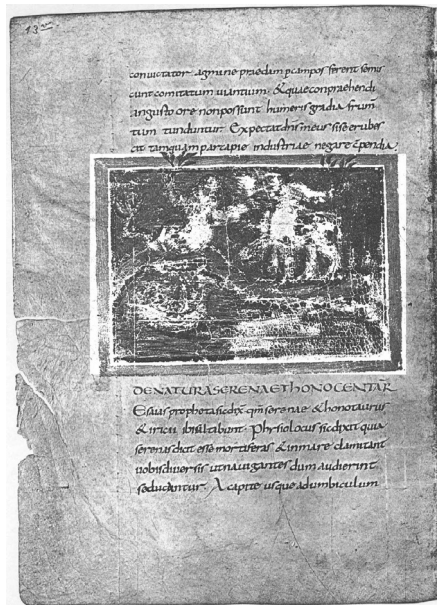 13
conuictator agmine praedam p campos ferent semis
cunt comitatum uiantium & quae conpraehendi
angusto ore non possunt humeris gradia frum
tum tunduntur Expectat dns meus sise erubes
cit tamquam partapie industriae negare
DE NATURA SERENAE ET HONOCENTAR
Esaus propheta sic dix qm serenae & honotaurus
& iricii ibi saltabunt Phisiolocus sic dixit quia
serenas dicit esse mortiferas & in mare clamitant
uobis diuersis ut nauigantes dum audierint
seducantur A capite usque ad umbiculum